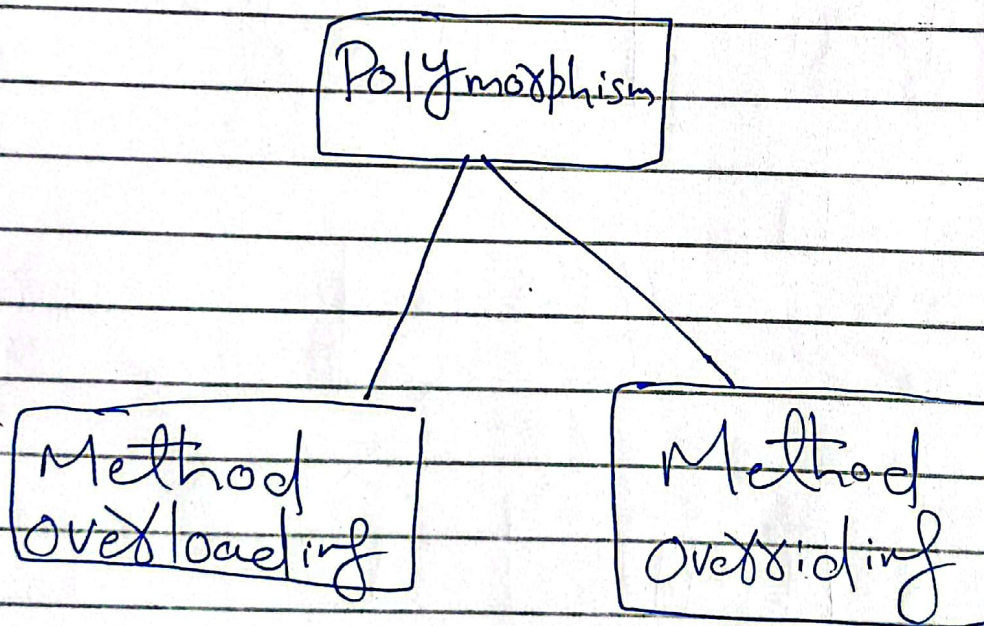 Polymorphism
Method
overloading
Method
overriding